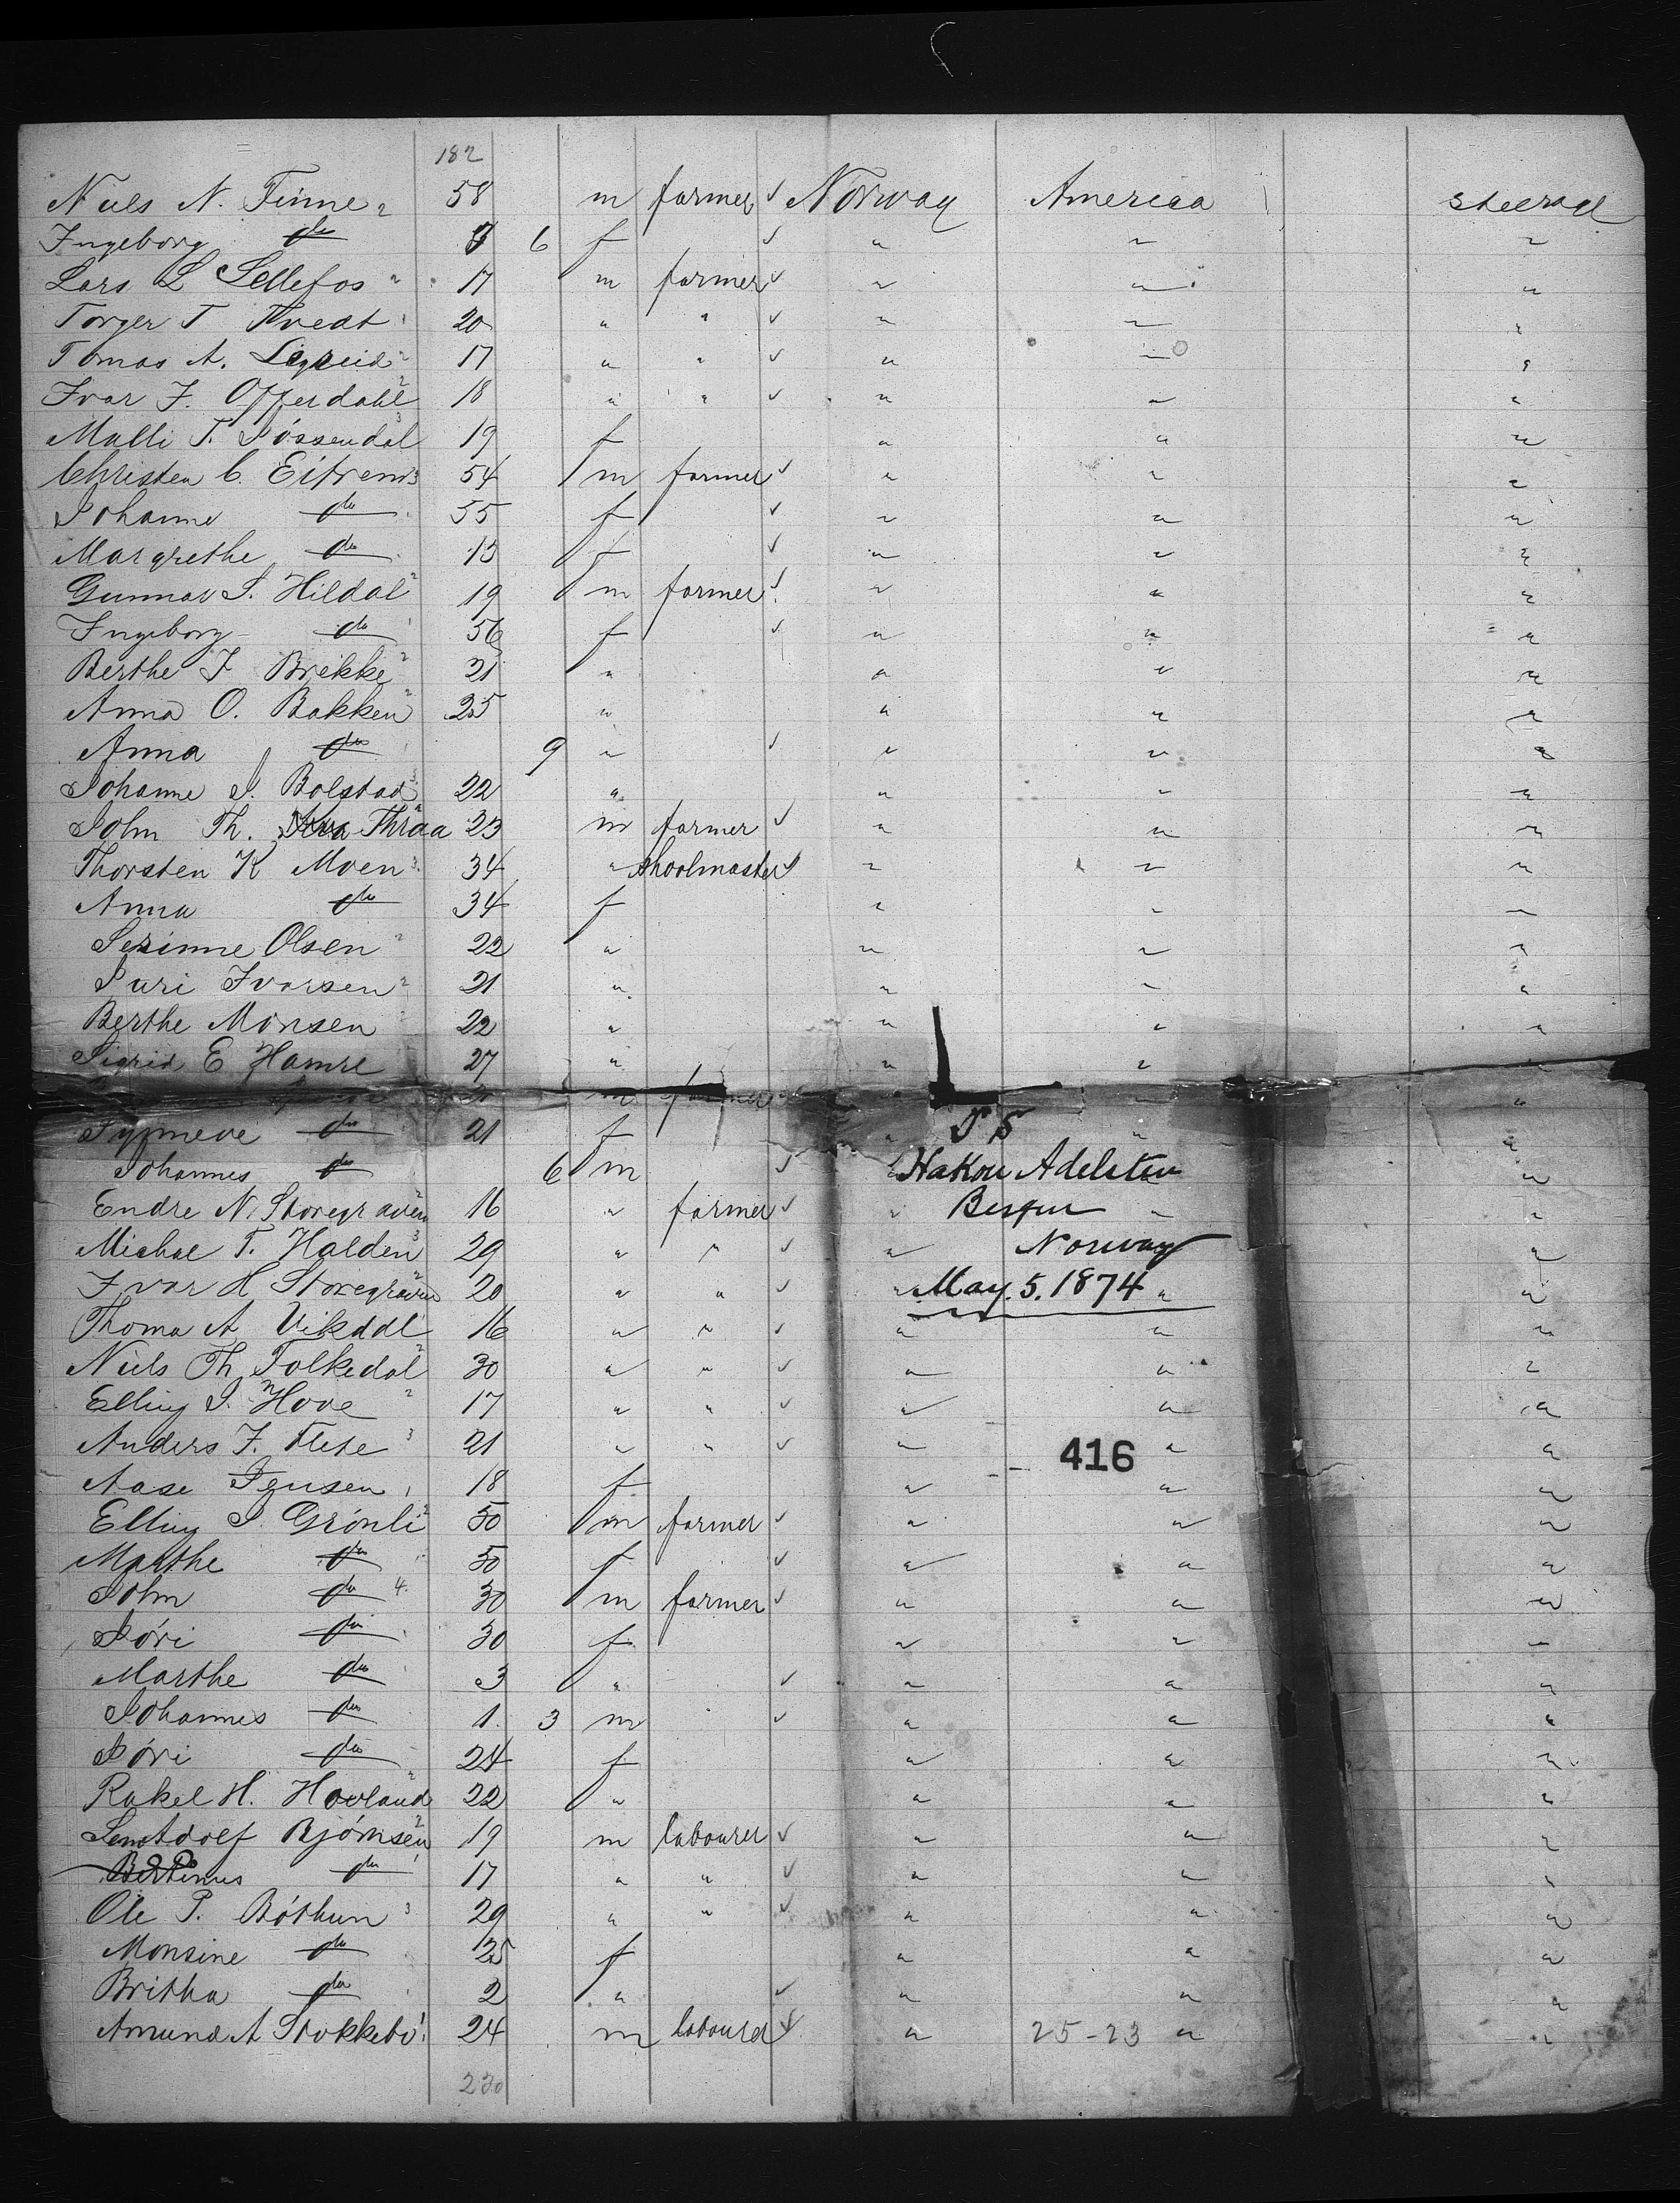 182
Niels N. Finne 2 58 m farmer ✓ Norway America steerage
Ingeborg do 6 f ✓ " " "
Lars L Sellefos 2 17 m farmer ✓ " " "
Torger T Tvedt 1 20 " " ✓ " " "
Tomas A. Ligreid 2 17 " " ✓ " " "
Ivar J. Offerdahl 2 18 " " ✓ " " "
Malli T. Jössendal 3 19 f " " "
Christen C. Eitrem 3 54 m farmer ✓ " " "
Johanne do 55 f ✓ " " "
Margrethe do 15 f ✓ " " "
Gunnar S. Hildal 2 19 m farmer ✓ " " "
Ingeborg do 1 56 f ✓ " " "
Berthe J Brekke 2 21 " " " "
Anna O. Bakken 2 25 " " " "
Anna do 9 " ✓ " " "
Johanne J. Bolstad 3 22 " " " "
John Th. Thraa 23 m farmer ✓ " " "
Thorsten K Moen 3 34 " skoolmaster ✓ " " "
Anna do 34 f " " "
Olsen 2 22 " " " "
Suri Ivarsen 2 21 " " " "
Berthe Monsen 2 22 " " " "
Sigrid E Hamre 27 " " " "
m farmer " "
Synneve do 21 f " " "
S S
Johannes do 6 m ✓ " Hakon Adelsten " "
Endre N. Storegraven 2 16 " farmer ✓ " Bergen " "
Michal T. Halden 3 29 " " ✓ " Norway "
Ivar H Storegraven 2 20 " " ✓ " May. 5. 1874 " "
Thoma A Vikdal 1 16 " " ✓ " " "
Niels Th Folkedal 2 30 " " ✓ " " "
Elling S. Hove 2 17 " " ✓ " " "
Anders J. Flete 3 21 " " ✓ " 416 " "
Aase Jensen 1 18 f " " "
Elling J. Grönli 2 50 m farmer ✓ " " "
Marthe do 50 f ✓ " " "
John do 4. 30 m farmer ✓ " " "
Söri do 30 f " " "
Marthe do 3 " ✓ " " "
Johannes do 1. 3 m ✓ " " "
Söri do 24 f " " "
Rakel H. Hovland 2 22 " " " "
Adolf Bjömsen 2 19 m labourer ✓ " " "
do 1 17 " " ✓ " " "
Ole P. Böthun 3 29 " " ✓ " " "
Monsine do 25 f " " "
Britha do 2 " ✓ " " "
Amund A Stokkebö 1 24 m labourer ✓ " 25-23 " "
230